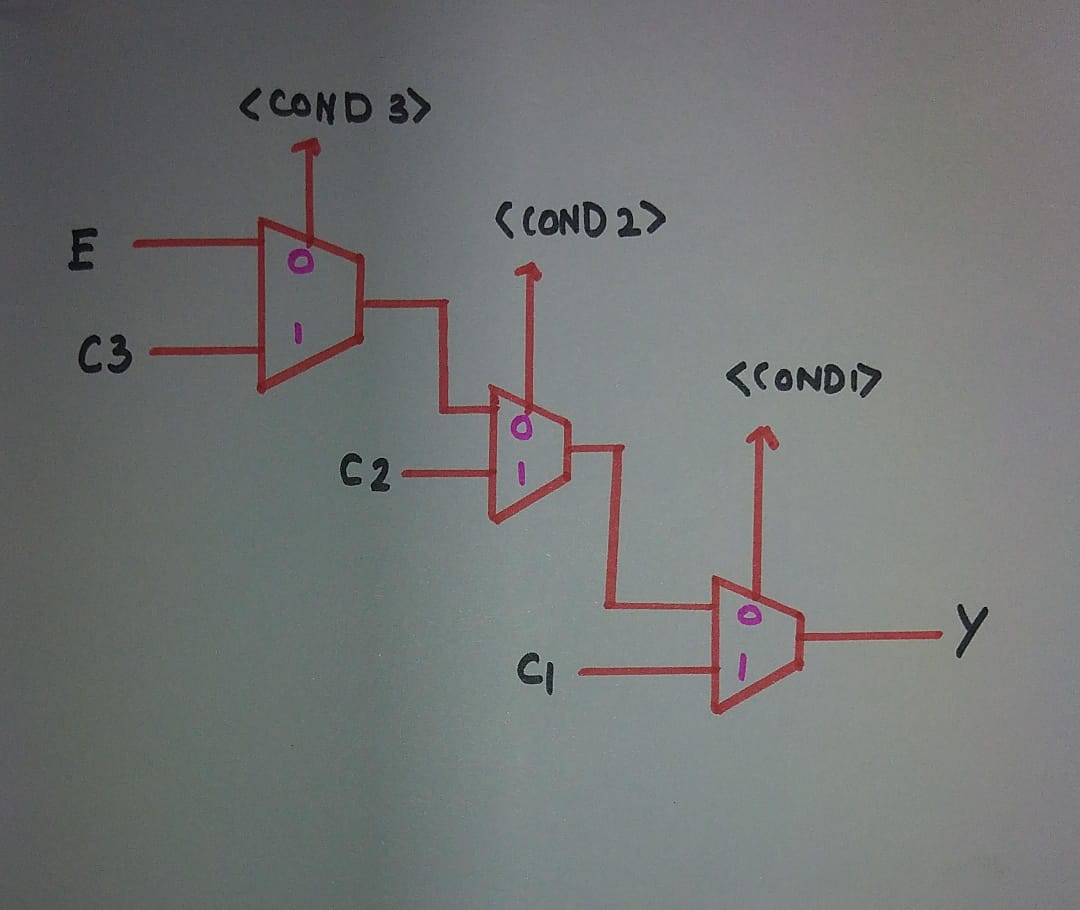 <COND 3>
E
0
1
C3
<COND 2>
0
C2
1
<COND1>
0
Y
C1
1